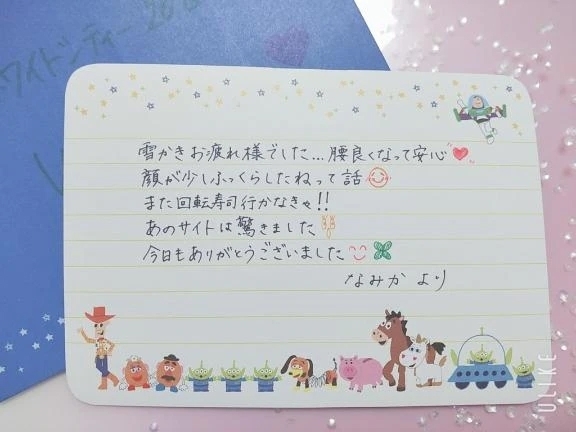 ワイトシティー 20
雪かきお疲れ様でした…腰良くなって安心
顔が少しふっくらしたねって話
また回転寿司行かなきゃ!!
あのサイトは驚きました
今日もありがとうございました
なみか より
ULIKE